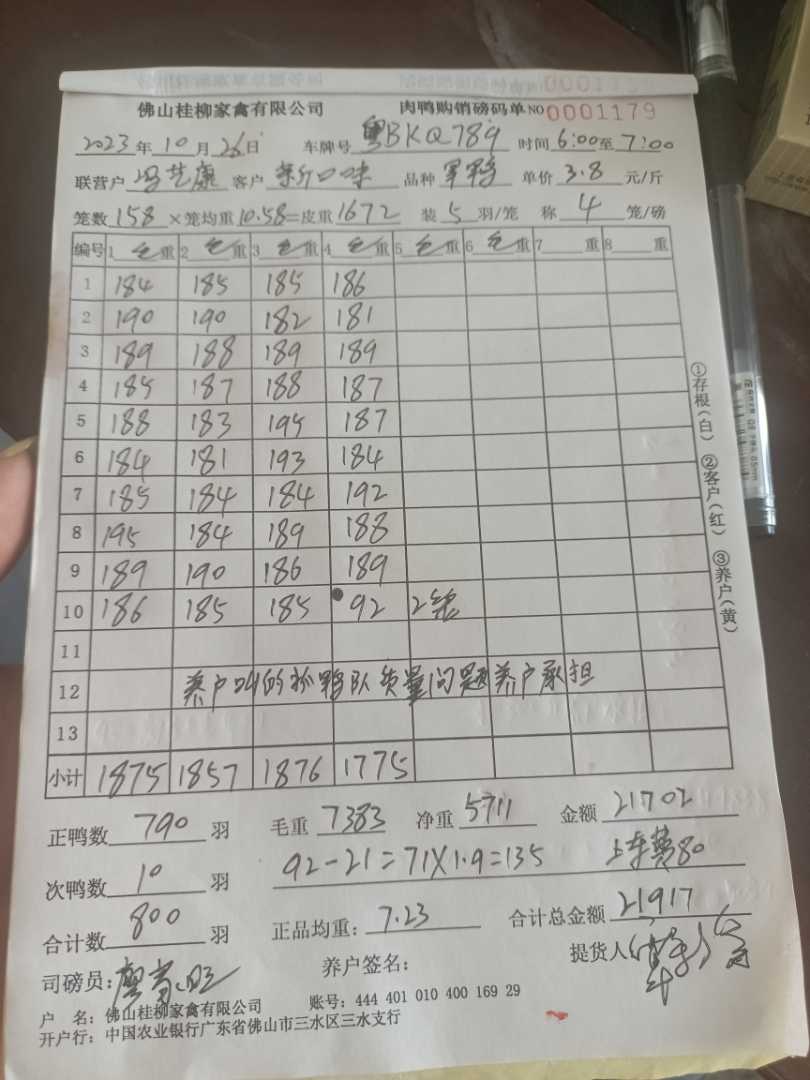 佛山桂柳家禽有限公司 肉鸭购销磅码单 NO 0001179
2023年10月26日 车牌号 粤BKQ789 时间 6:00至7:00
联营户 冯艺康 客户 新口味 品种 军鸭 单价 3.8 元/斤
笼数 158 ×笼均重 10.58=皮重 1672 装 5 羽/笼 称 4 笼/磅
编号 1 毛重 2 毛重 3 毛重 4 毛重 5 毛重 6 毛重 7 重 8 重
1 184 185 185 186
2 190 190 182 181
3 189 188 189 189
4 185 187 188 187
5 188 183 195 187
6 184 181 193 184
7 185 184 184 192
8 195 184 189 188
9 189 190 186 189
10 186 185 185 92 2笼
11
12 养户叫的抓鸭队质量问题养户承担
13
小计 1875 1857 1876 1775
正鸭数 790 羽 毛重 7383 净重 5711 金额 21702
次鸭数 10 羽 92-21=71×1.9=135 上车费80
合计数 800 羽 正品均重: 7.23 合计总金额 21917
司磅员: 养户签名: 提货人
户 名: 佛山桂柳家禽有限公司 账号: 444 401 010 400 169 29
开户行: 中国农业银行广东省佛山市三水区三水支行
①存根(白) ②客户(红) ③养户(黄)